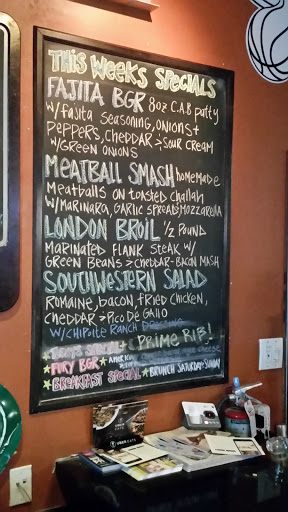 THIS WEEKS SPECIALS
FAJITA BGR 8oz C.A.B patty
w/ fajita seasoning, onions +
peppers, cheddar > sour cream
w/ green onions
MEATBALL SMASH homemade
meatballs on toasted challah
w/ marinara, garlic spread > mozzarella
LONDON BROIL 1/2 pound
marinated flank steak w/
green beans > cheddar-bacon mash
SOUTHWESTERN SALAD
romaine, bacon, fried chicken,
cheddar > pico de gallo
w/ chipotle ranch dressing
SPECIAL PRIME RIB!
★ FURY BGR ★ American cheese
★ BREAKFAST SPECIAL ★ BRUNCH SATURDAY > SUNDAY
UBER EATS